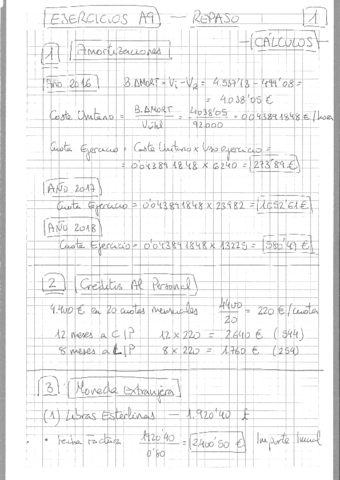 EJERCICIOS A9 — REPASO 1
CÁLCULOS
1 Amortizaciones
Año 2016 B. AMORT = Vi - VR = 4.537'13 - 499'08 =
= 4.038'05 €
Coste Unitario = B.AMORT / V.útil = 4038'05 / 92000 = 0'043891848 € / hora
Cuota Ejercicio = Coste Unitario x Uso ejercicio =
= 0'043891848 x 6240 = 273'89 €
AÑO 2017
Cuota Ejercicio = 0'043891848 x 23982 = 1052'61 €
AÑO 2018
Cuota Ejercicio = 0'043891848 x 13225 = 580'47 €
2 Créditos Al Personal
4.400 € en 20 cuotas mensuales 4400 / 20 = 220 € / cuota
12 meses a C|P 12 x 220 = 2.640 € (544)
8 meses a L|P 8 x 220 = 1760 € (254)
3 Moneda Extranjera
(1) Libras Esterlinas — 1.920'40 £
• Fecha Factura 1920'40 / 0'80 = 2400'50 € Importe Inicial